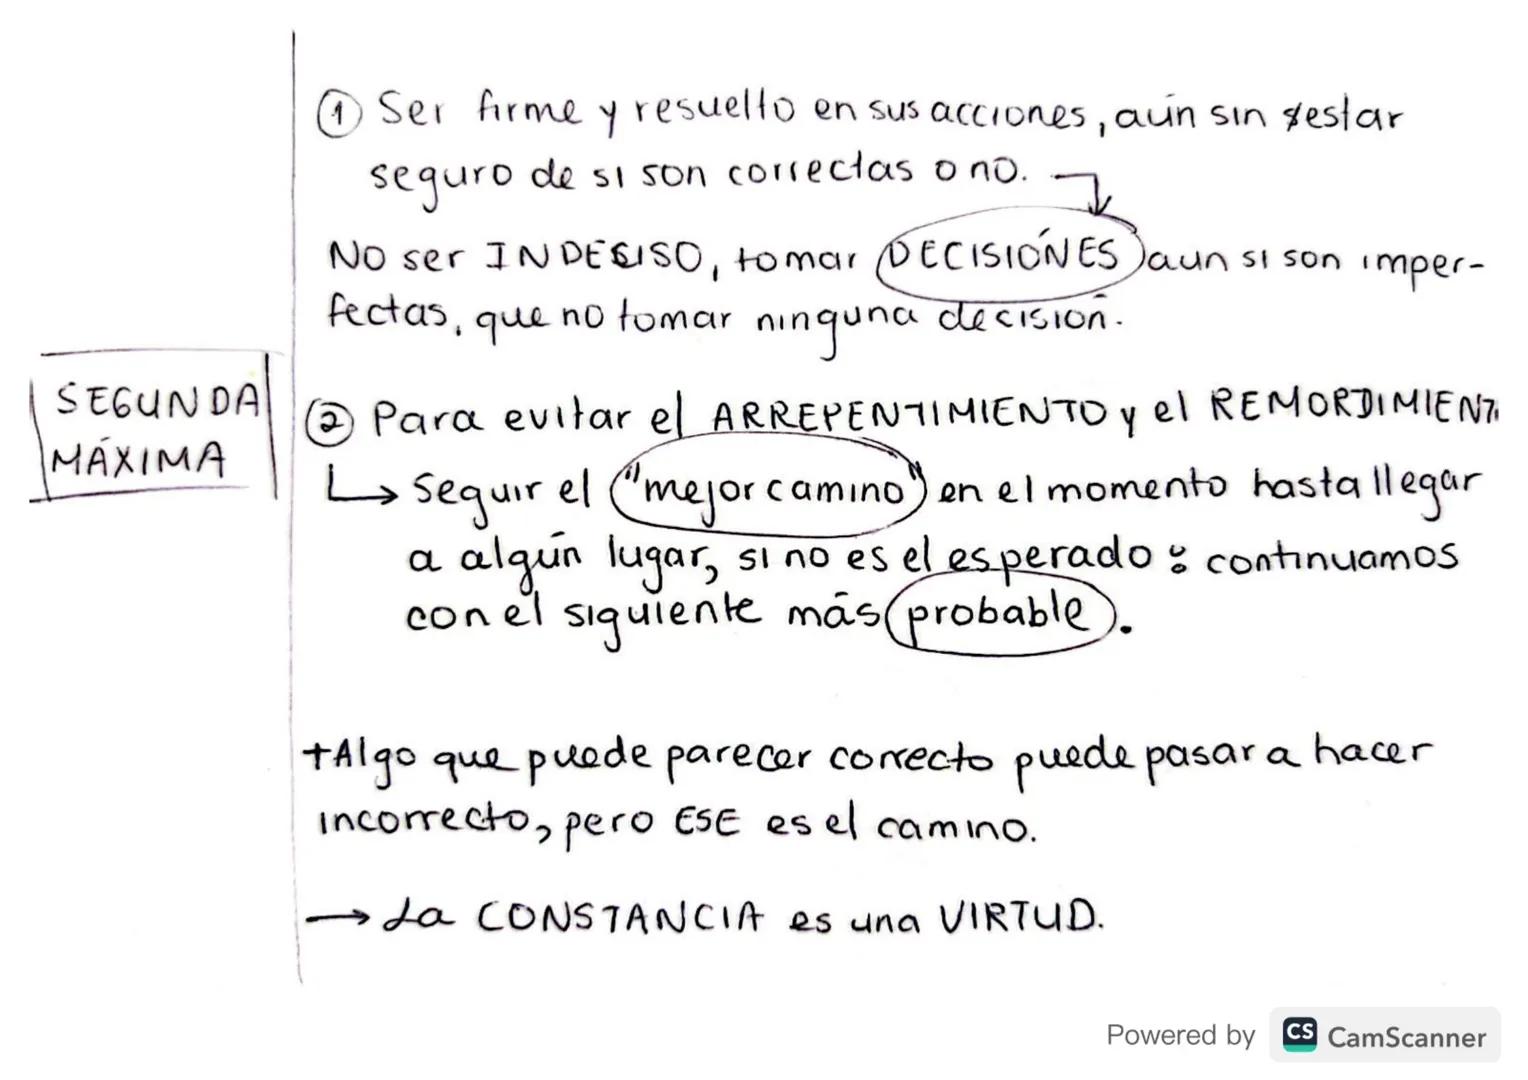 ① Ser firme y resuelto en sus acciones, aún sin estar
seguro de si son correctas o no.
NO ser INDECISO, tomar DECISIÓNES aun si son imper-
fectas, que no tomar ninguna decisión.
SEGUNDA
MÁXIMA
② Para evitar el ARREPENTIMIENTO y el REMORDIMIENT
↳ Seguir el "mejor camino" en el momento hasta llegar
a algún lugar, si no es el esperado: continuamos
con el siguiente más probable.
+Algo que puede parecer correcto puede pasar a hacer
incorrecto, pero ESE es el camino.
→ La CONSTANCIA es una VIRTUD.
Powered by CS CamScanner